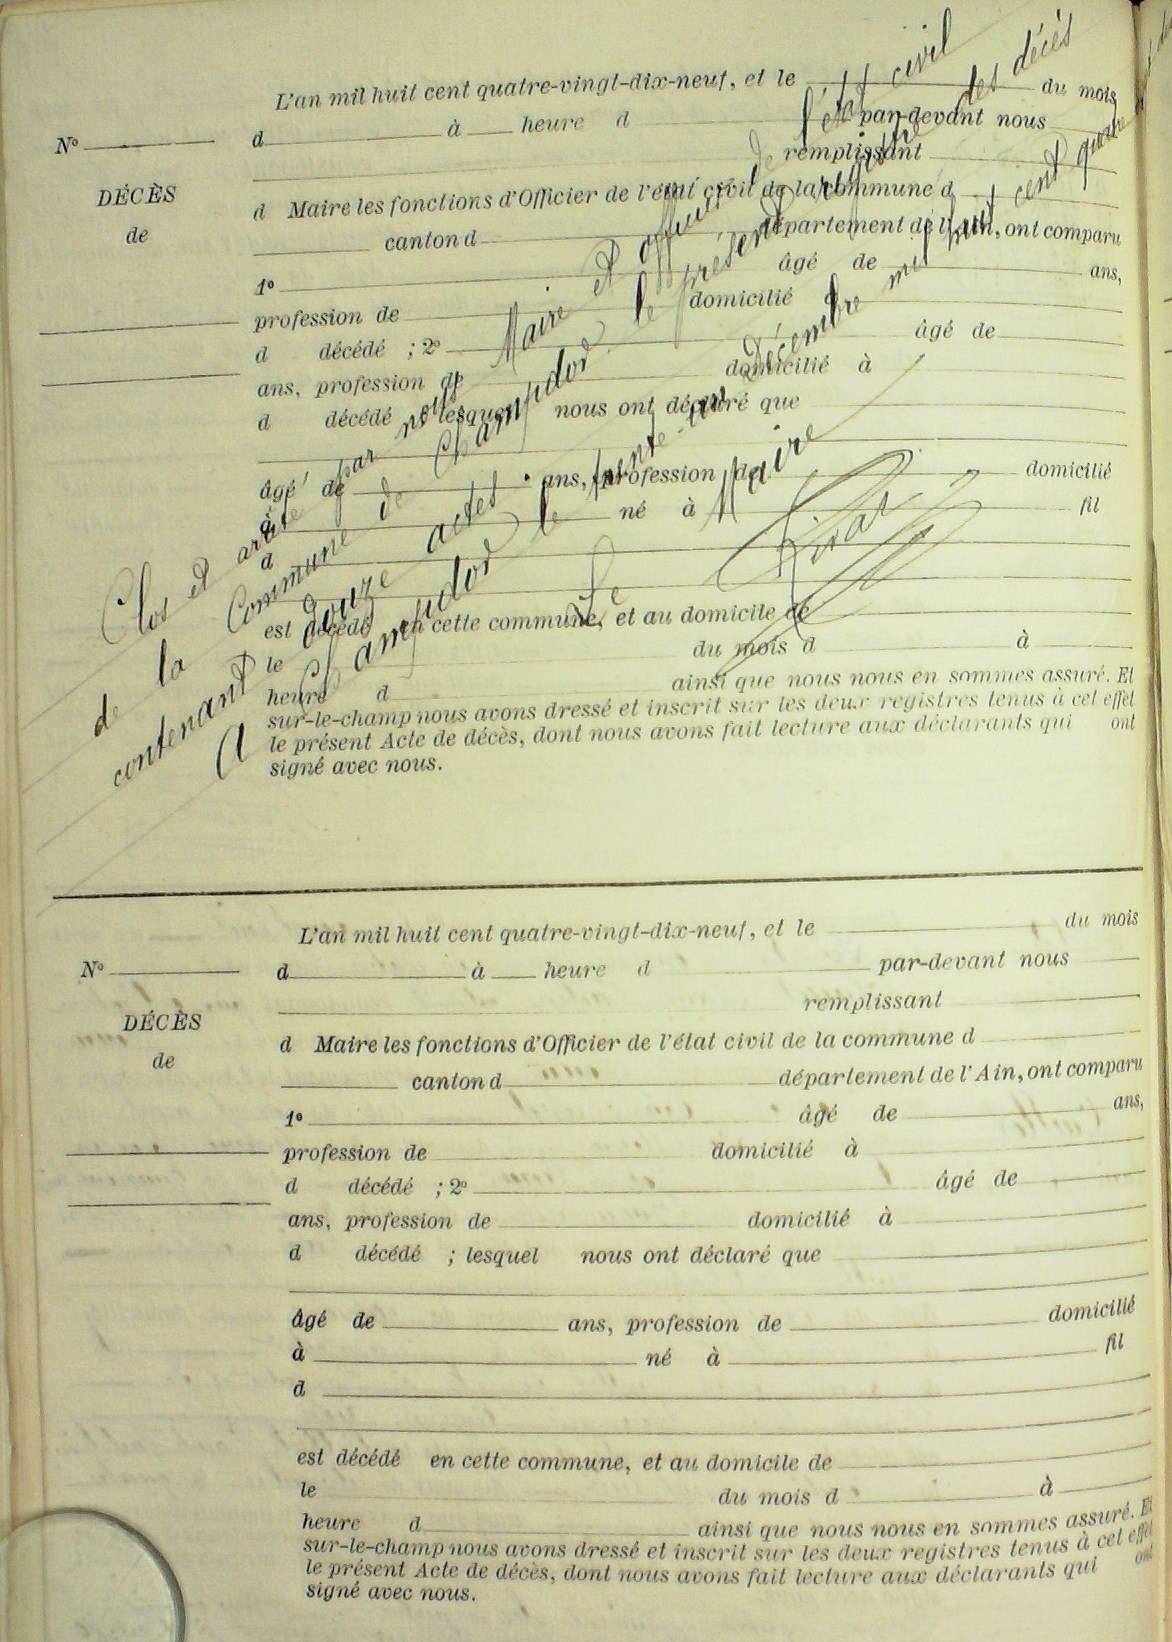 L'an mil huit cent quatre-vingt-dix-neuf, et le du mois
N° d à heure d par-devant nous
remplissant
DÉCÈS
d Maire les fonctions d'Officier de l'état civil de la commune d
de
canton d département de l'Ain, ont comparu
1° âgé de ans,
profession de domicilié à
d décédé ; 2° âgé de
ans, profession de domicilié à
d décédé ; lesquel nous ont déclaré que
âgé de ans, profession de domicilié
à né à fil
d
est décédé en cette commune, et au domicile de
le du mois d à
heure d ainsi que nous nous en sommes assuré. Et
sur-le-champ nous avons dressé et inscrit sur les deux registres tenus à cet effet
le présent Acte de décès, dont nous avons fait lecture aux déclarants qui ont
signé avec nous.
Clos et arrêté par nous Maire et officier de l'état civil
de la Commune de Champdor le présent registre des décès
contenant douze actes
A Champdor le trente-un Décembre mil huit cent quatre
Le Maire
L'an mil huit cent quatre-vingt-dix-neuf, et le du mois
N° d à heure d par-devant nous
remplissant
DÉCÈS
d Maire les fonctions d'Officier de l'état civil de la commune d
de
canton d département de l'Ain, ont comparu
1° âgé de ans,
profession de domicilié à
d décédé ; 2° âgé de
ans, profession de domicilié à
d décédé ; lesquel nous ont déclaré que
âgé de ans, profession de domicilié
à né à fil
d
est décédé en cette commune, et au domicile de
le du mois d à
heure d ainsi que nous nous en sommes assuré. Et
sur-le-champ nous avons dressé et inscrit sur les deux registres tenus à cet effet
le présent Acte de décès, dont nous avons fait lecture aux déclarants qui ont
signé avec nous.